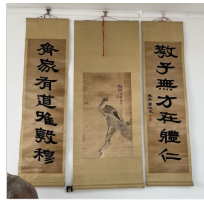 教子無方在體仁
齊家有道唯敦穆